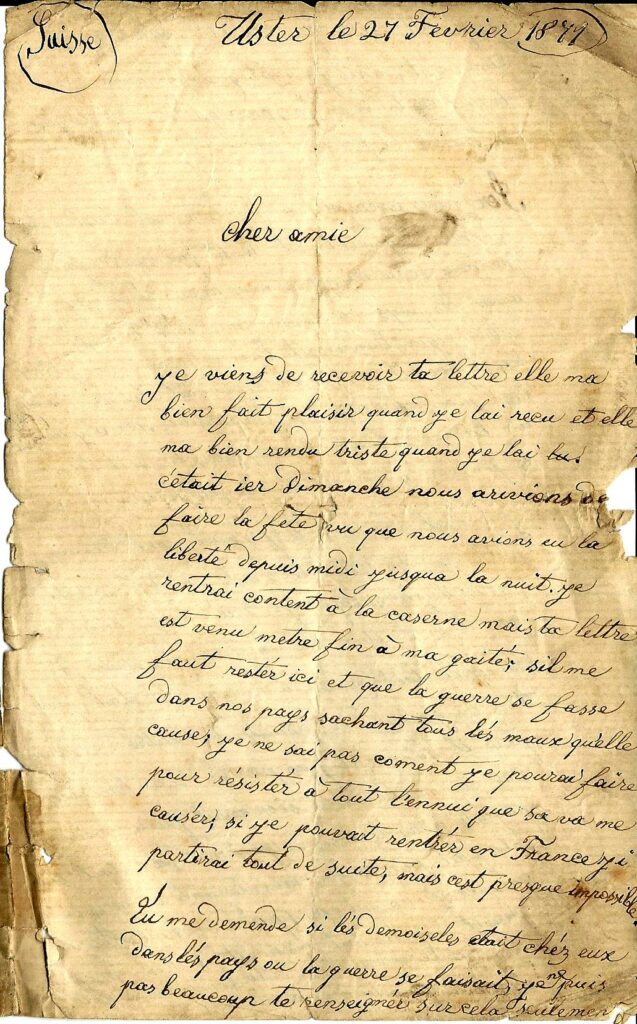 Suisse
Uster le 27 Fevrier 1871
cher amie
je viens de recevoir ta lettre elle ma
bien fait plaisir quand je lai recu et elle
ma bien rendu triste quand je lai lu.
c'était ier Dimanche nous arivions de
faire la fete vu que nous avions eu la
liberté depuis midi jusqua la nuit. je
rentrai content à la caserne mais ta lettre
est venu metre fin à ma gaité; sil me
faut restér ici et que la guerre se fasse
dans nos pays sachant tous lés maux qu'elle
cause; je ne sai pas coment je pourai faire
pour résistér à tout l'ennui que sa va me
causér; si je pouvait rentrér en France j'i
partirai tout de suite, mais cest presque impossible.
Tu me demende si lés demoiseles etait chéz eux
dans lés pays ou la guerre se faisait, je ne puis
pas beaucoup te renseignér sur cela, seulement